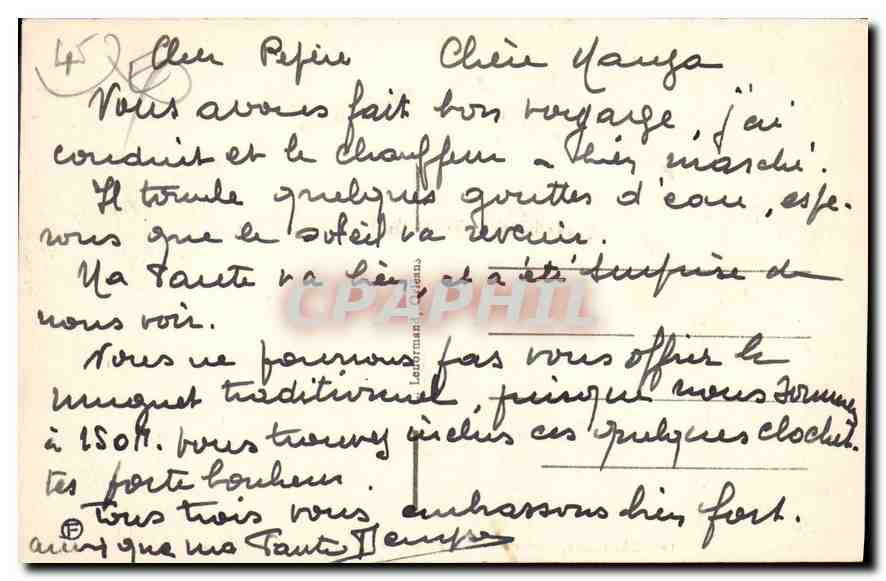 45
Cher Pepère Chère Manga
Nous avons fait bon voyage, j'ai
conduit et le chauffeur a bien marché.
Il tombe quelques gouttes d'eau, espe-
rons que le soleil va revenir.
Ma Tante va bien, et a été surprise de
nous voir.
Nous ne pouvons pas vous offrir le
muguet traditionnel, puisque nous sommes
à 150 K. vous trouvez inclus ces quelques clochet-
tes porte bonheur.
Tous trois vous embrassons bien fort.
ainsi que ma Tante
F
Lenormand, Orléans
CPAPHIL